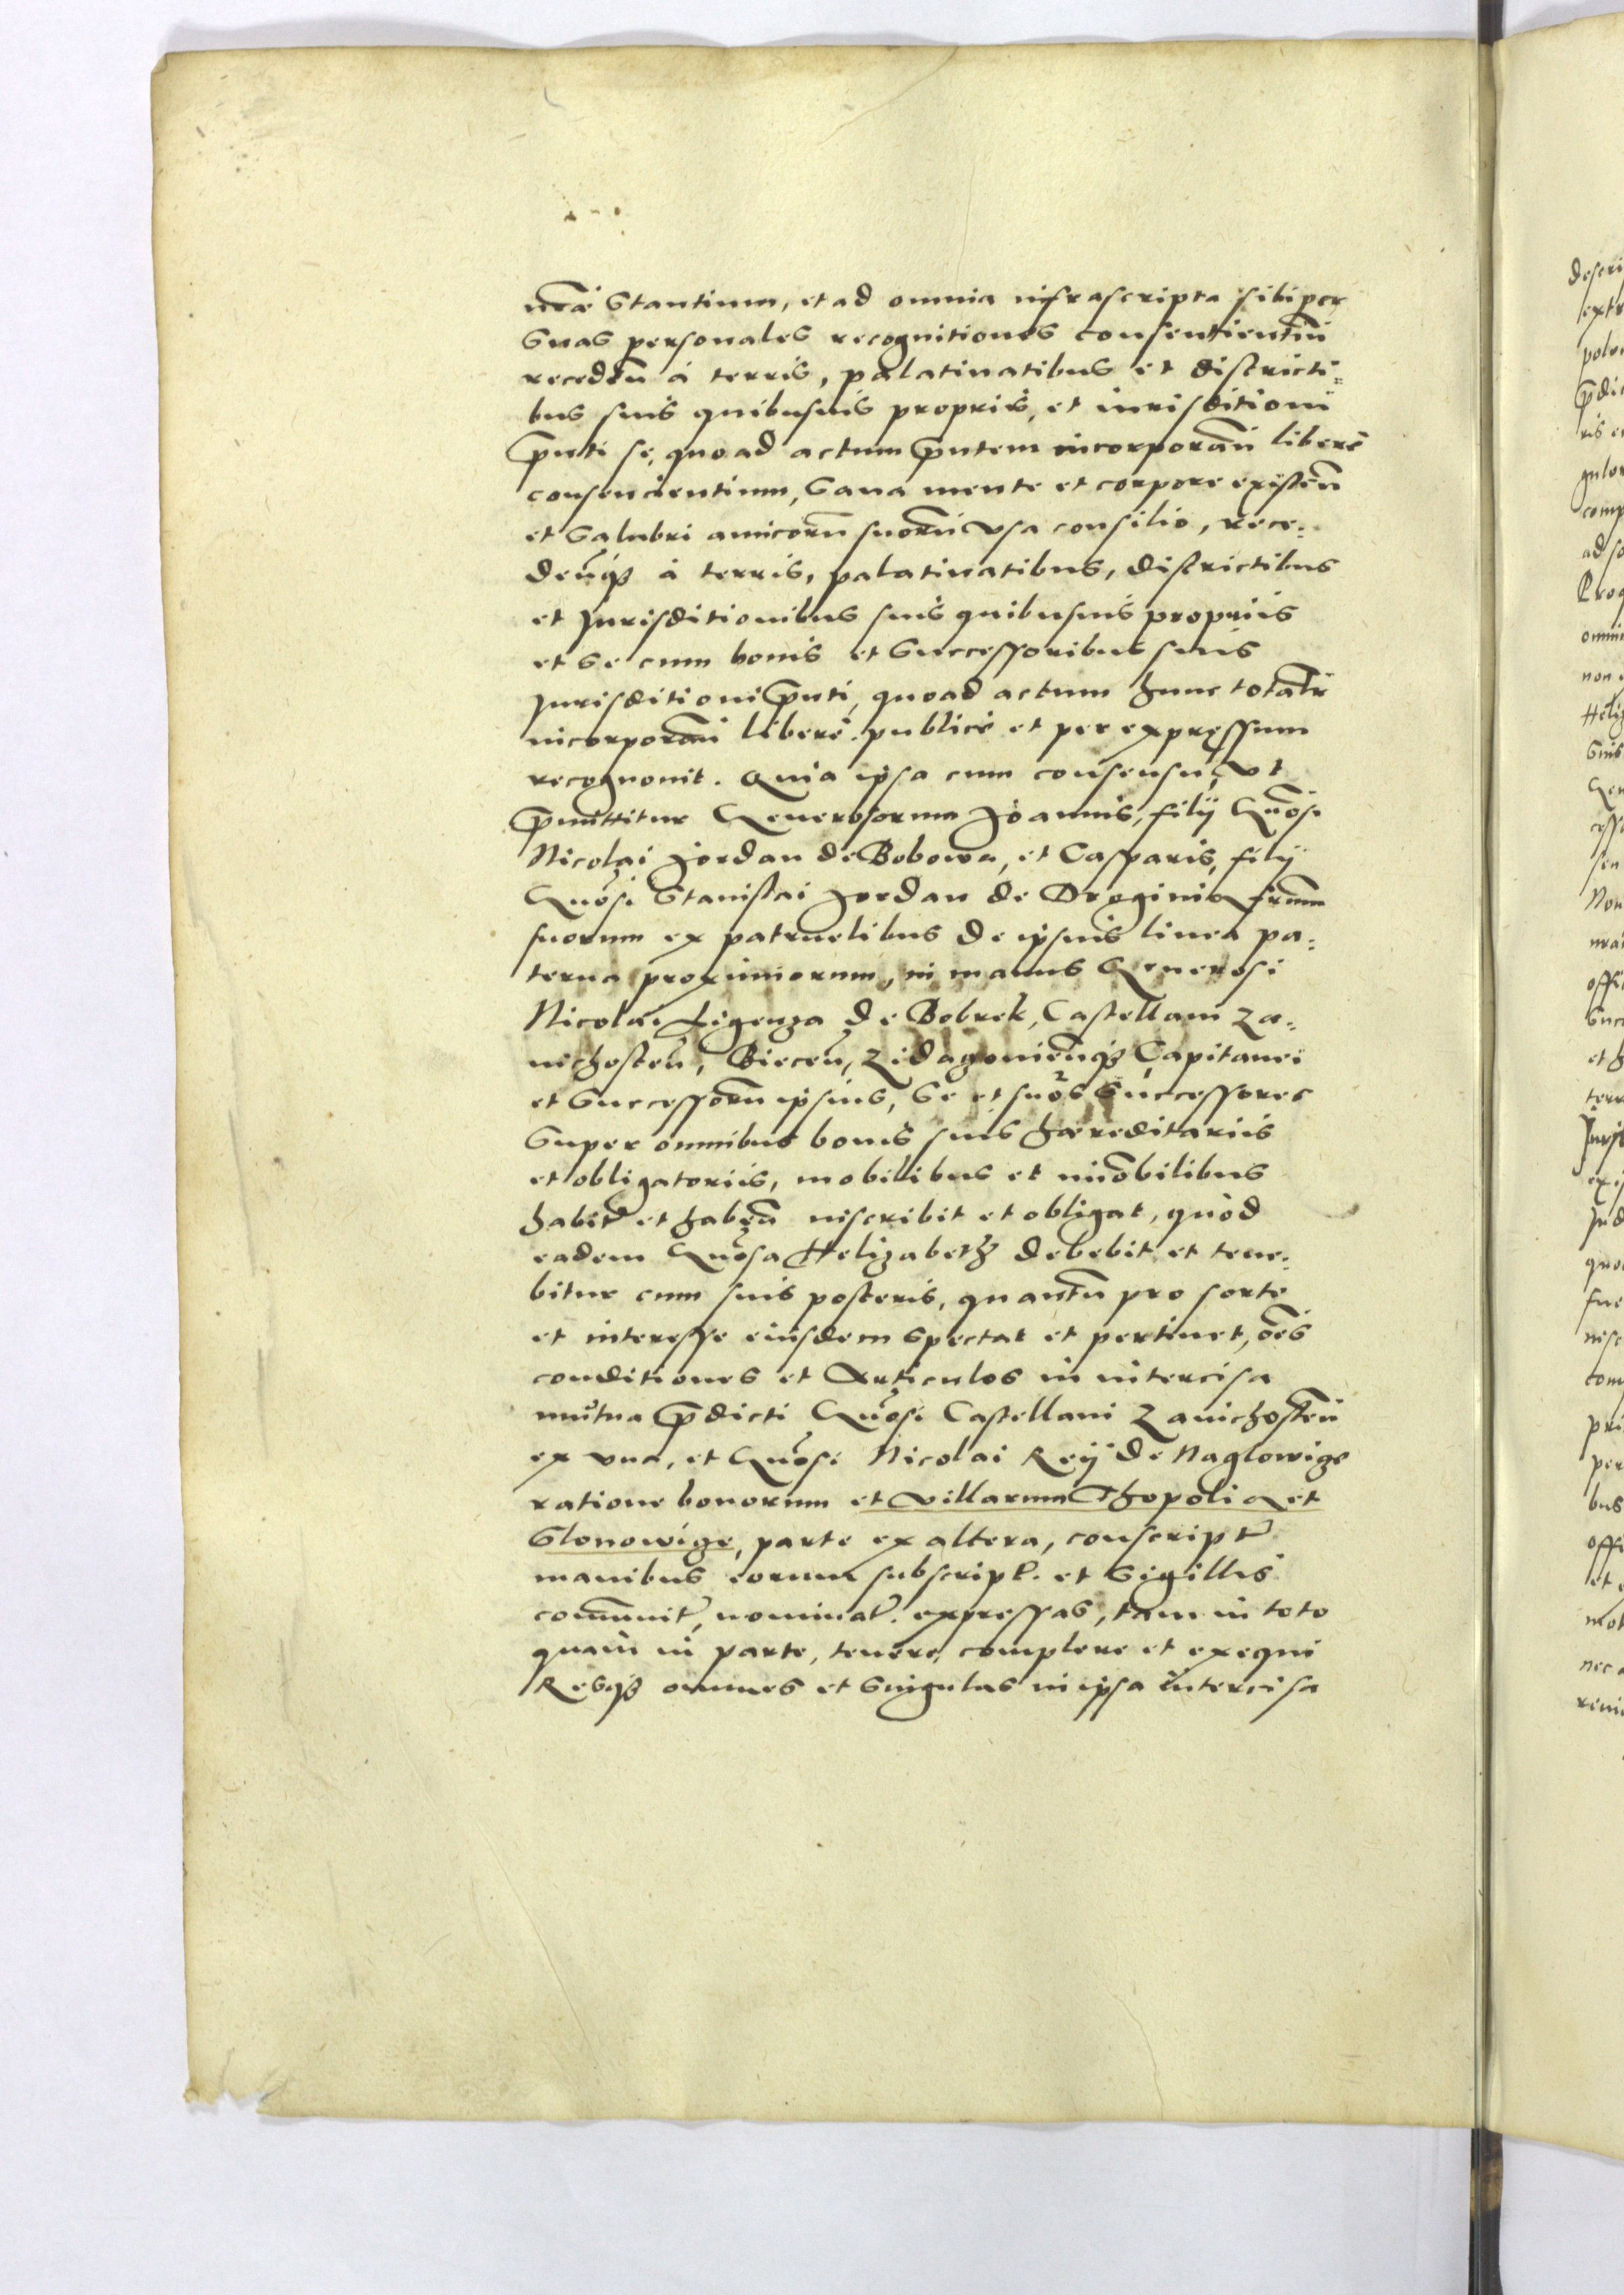 nrae Stantium, et ad omnia infrascripta sibi per
Suas personales recognitiones consentientiu̅
recedeñ à terris, palatinatibus et districti=
bus suis quibusuis proprijs, et iurisditioni
pñti se, quo ad actum pñtem incorporañ liberè
consencientium, Sana mente et corpore existeñ
et Salubri amicoru̅ suoru̅ vsa consilio, rece=
deñq₃ à terris, palatinatibus, districtibus
et Jurisditionibus suis quibusuis proprijs
et Se cum bonis et Successoribus suis
Jurisditioni pñti, quoad actum hunc totalr
incorporañ liberè. publicè et per expręssum
recognouit. Quia ipsa cum consensu, vt
p̅mittitur Generosorum Joannis, filij Gñosi
Nicolai Jordan de Bobowa, et Casparis, filij
Gñosi Stanislai Jordan de Droginia frm̅
suorum ex patruelibus de ipsius linea pa=
terna proximiorum, in manus Generosi
Nicolai Ligenza de Bobrek, Castellani Za=
uichosteñ, Bieceñ, Zidagouieñq₃ Capitanei
et Successoru̅ ipsius, Se et suos Successores
Super omnibus bonis suis hæreditarijs
et obligatorijs, mobilibus et im̅obilibus
habit̃ et habeñ inscribit et obligat, quòd
eadem Gñosa Helizabeth debebit et tene=
bitur cum suis posteris, quantu̅ pro sorte
et interesse eiusdem Spectat et pertinet, oẽs
conditiones et Articulos in intercisa
mutua p̅dicti Gñosi Castellani Zauichosteñ
ex vna, et Gñosi Nicolai Reÿ de Naglowize
ratione bonorum et villarum Thopolia et
Slonowize, parte ex altera, conscript̃
manibus eorum subscript. et Sigillis
com̅unit̃, nominat̃. expressas, tam in toto
quàm in parte, tenere, complere et exequi
Resq₃ omnes et Singulas in ipsa intercisa